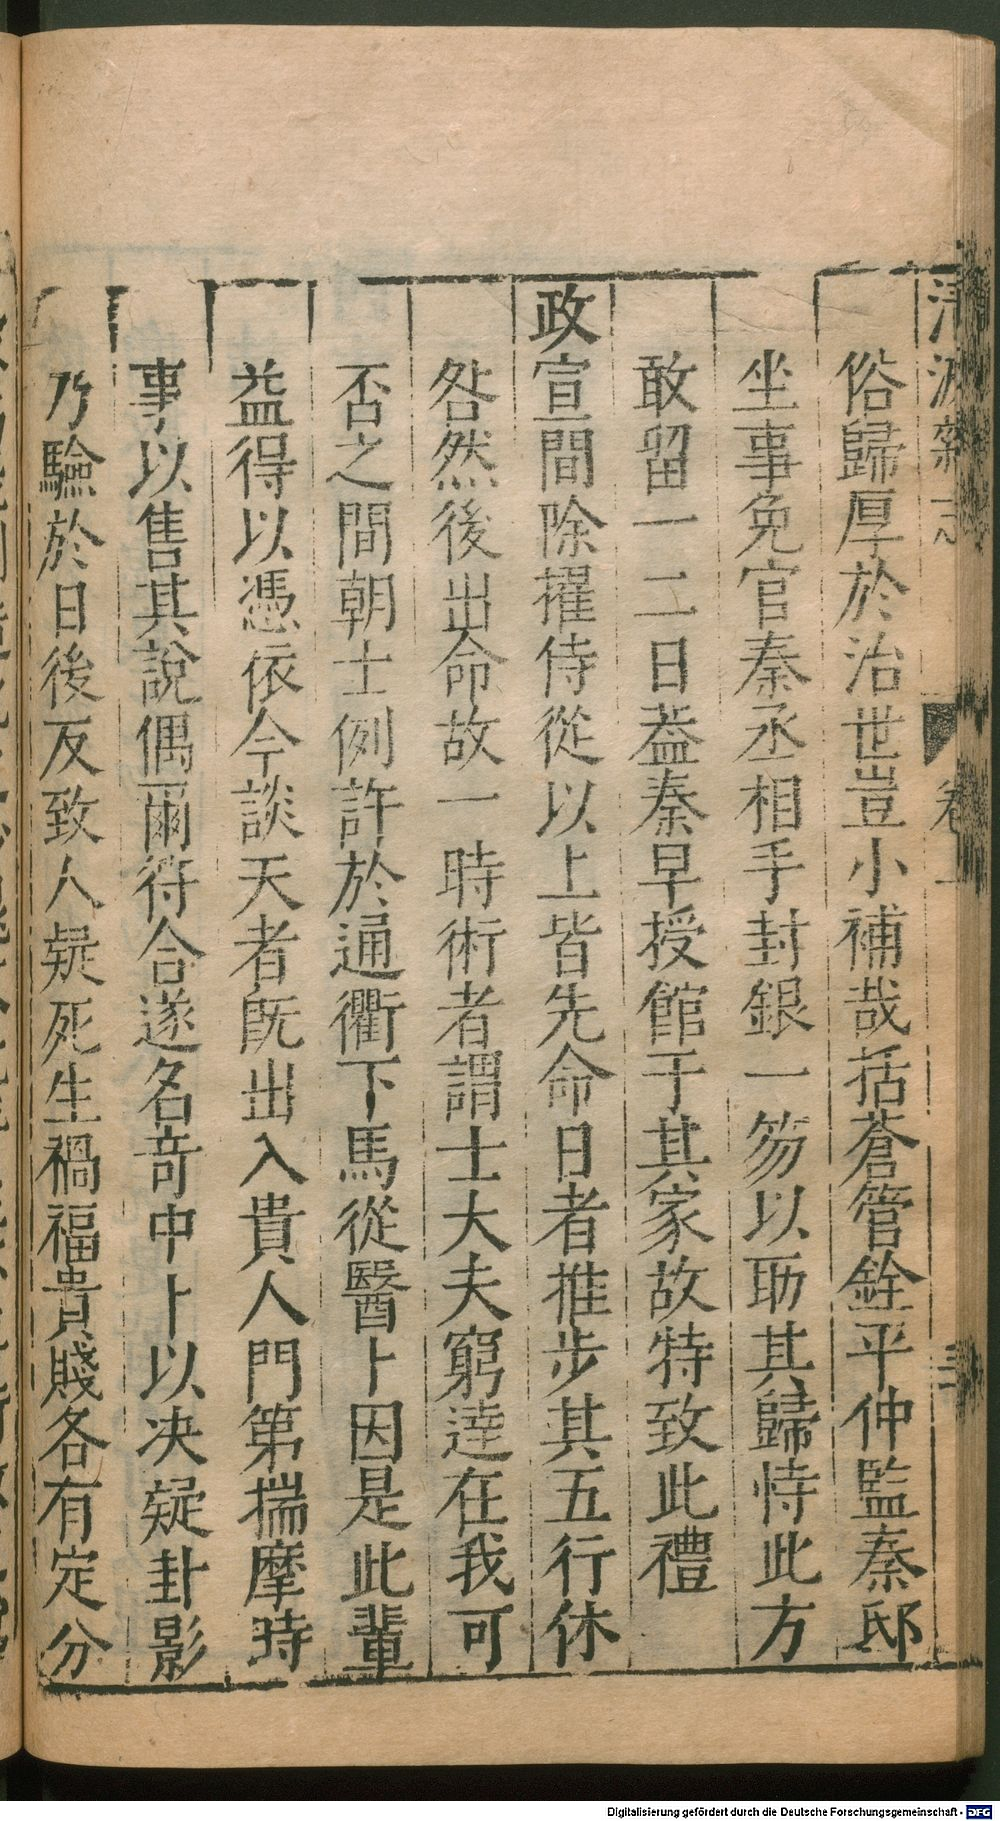 俗歸厚於治世豈小補哉括蒼管銓平仲監秦邸
坐事免官秦丞相手封銀一笏以助其歸恃此方
敢留一二日葢秦早授館于其家故特致此禮
政宣間除擢侍從以上皆先命日者推步其五行休
咎然後出命故一時術者謂士大夫窮達在我可
否之間朝士例許於通衢下馬從醫卜因是此輩
益得以憑依今談天者既出入貴人門第揣摩時
事以售其說偶爾符合遂名奇中卜以决疑卦影
乃驗於日後反致人疑死生禍福貴賤各有定分
清波雜志
卷
三
Digitalisierung gefördert durch die Deutsche Forschungsgemeinschaft - DFG